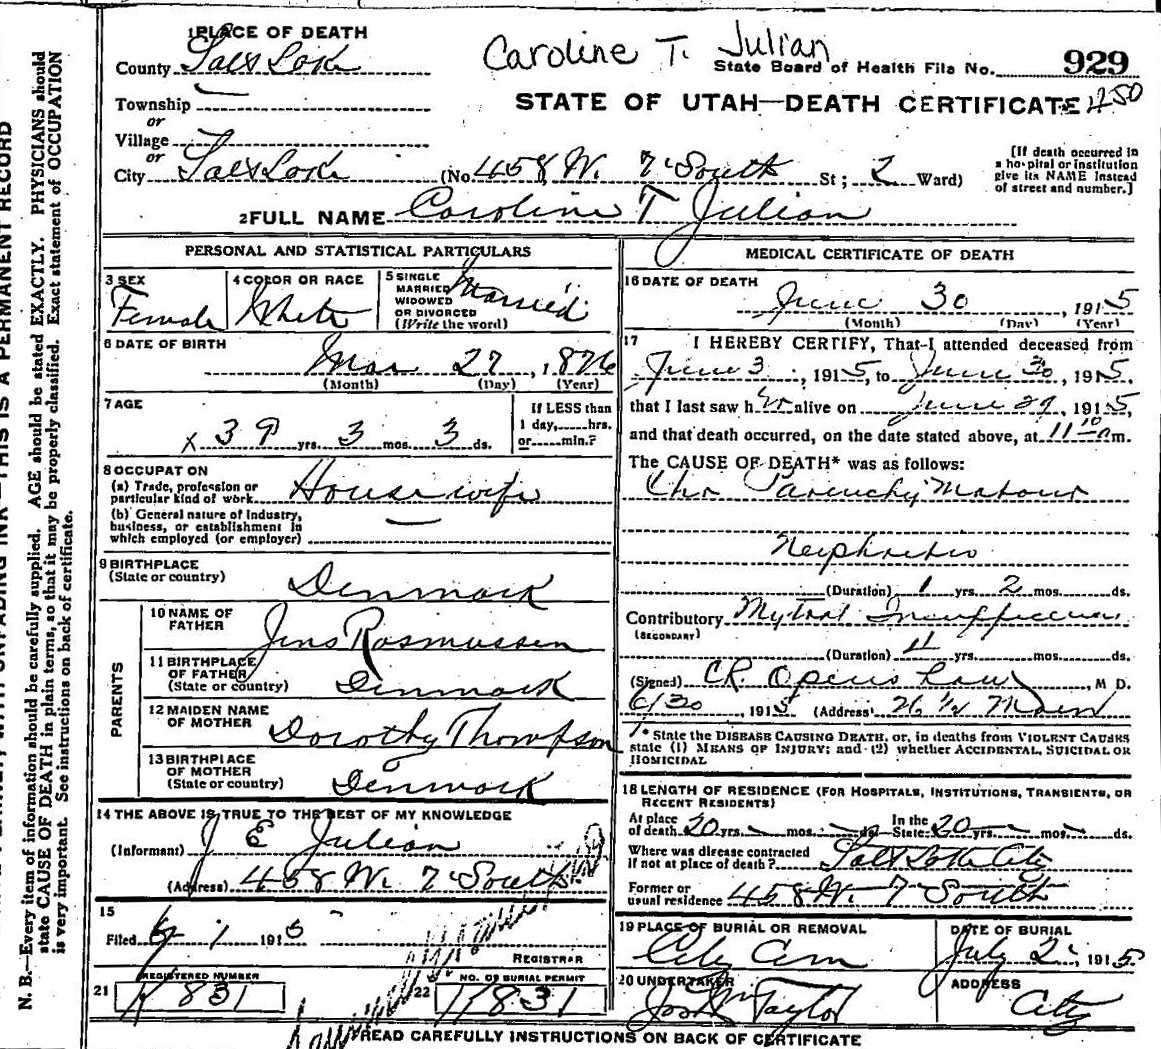 Caroline T. Julian
1 PLACE OF DEATH
County Salt Lake
State Board of Health File No. 929
STATE OF UTAH—DEATH CERTIFICATE 1250
Township
or
Village
or
City Salt Lake (No. 458 W. 7 South St; 2 Ward)
[If death occurred in a hospital or institution give its NAME instead of street and number.]
2 FULL NAME Caroline T Julian
PERSONAL AND STATISTICAL PARTICULARS
3 SEX
Female
4 COLOR OR RACE
White
5 SINGLE
MARRIED
WIDOWED
OR DIVORCED
(Write the word)
Married
6 DATE OF BIRTH
Mar 27, 1876
(Month) (Day) (Year)
7 AGE
x 39 yrs. 3 mos. 3 ds.
If LESS than
1 day, hrs.
or min.?
8 OCCUPATION
(a) Trade, profession or
particular kind of work Housewife
(b) General nature of Industry,
business, or establishment in
which employed (or employer) —
9 BIRTHPLACE
(State or country) Denmark
PARENTS
10 NAME OF
FATHER Jens Rasmussen
11 BIRTHPLACE
OF FATHER
(State or country) Denmark
12 MAIDEN NAME
OF MOTHER Dorothy Thompson
13 BIRTHPLACE
OF MOTHER
(State or country) Denmark
14 THE ABOVE IS TRUE TO THE BEST OF MY KNOWLEDGE
(Informant) J E Julian
(Address) 458 W. 7 South
15
Filed 1915
REGISTRAR
REGISTERED NUMBER
21 831
NO. OF BURIAL PERMIT
22 11831
MEDICAL CERTIFICATE OF DEATH
16 DATE OF DEATH
June 30, 1915
(Month) (Day) (Year)
17 I HEREBY CERTIFY, That I attended deceased from
June 3, 1915, to June 30, 1915,
that I last saw her alive on June 29, 1915,
and that death occurred, on the date stated above, at 11 10 m.
The CAUSE OF DEATH* was as follows:
Chr Parenchymatous
Nephritis
(Duration) 1 yrs. 2 mos. ds.
Contributory Mytral
(SECONDARY)
(Duration) 4 yrs. mos. ds.
(Signed) M D.
6/30 1915 (Address) Main
* State the DISEASE CAUSING DEATH, or, in deaths from VIOLENT CAUSES
state (1) MEANS OF INJURY; and (2) whether ACCIDENTAL, SUICIDAL OR
HOMICIDAL
18 LENGTH OF RESIDENCE (FOR HOSPITALS, INSTITUTIONS, TRANSIENTS, OR
RECENT RESIDENTS)
At place
of death 20 yrs. mos. ds.
In the
State 20 yrs. mos. ds.
Where was disease contracted
if not at place of death? Salt Lake City
Former or
usual residence 458 W. 7 South
19 PLACE OF BURIAL OR REMOVAL
City Cem
DATE OF BURIAL
July 2, 1915
20 UNDERTAKER
Taylor
ADDRESS
City
READ CAREFULLY INSTRUCTIONS ON BACK OF CERTIFICATE
THIS IS A PERMANENT RECORD
N. B.—Every item of information should be carefully supplied. AGE should be stated EXACTLY. PHYSICIANS should
state CAUSE OF DEATH in plain terms, so that it may be properly classified. Exact statement of OCCUPATION
is very important. See instructions on back of certificate.